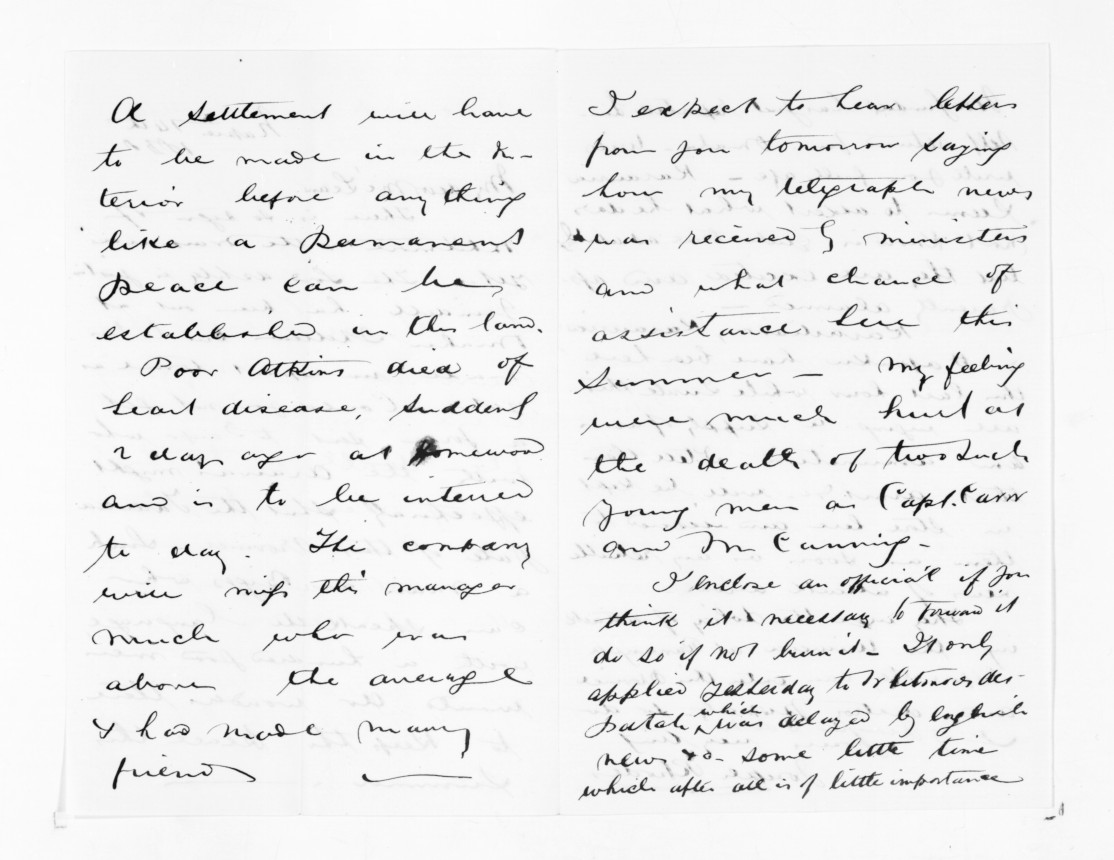 A settlement will have
to be made in the In-
terior before anything
like a permanent
peace can be
established in this land.
Poor Atkins died of
heart disease, suddenly
2 days ago at Homewood
and is to be interred
to day. The company
will miss this manager
much who was
above the average
& had made many
friends
I expect to hear letters
from you tomorrow saying
how my telegraph news
was received by ministers
and what chance of
assistance here this
Summer - My feeling
were much hurt at
the death of two such
young men as Capt. Carr
and Mr Canning -
I enclose an official if you
think it necessary to forward it
do so if not burn it - It only
applied yesterday to Dr des-
patch which was delayed by english
news &c some little time
which after all is of little importance